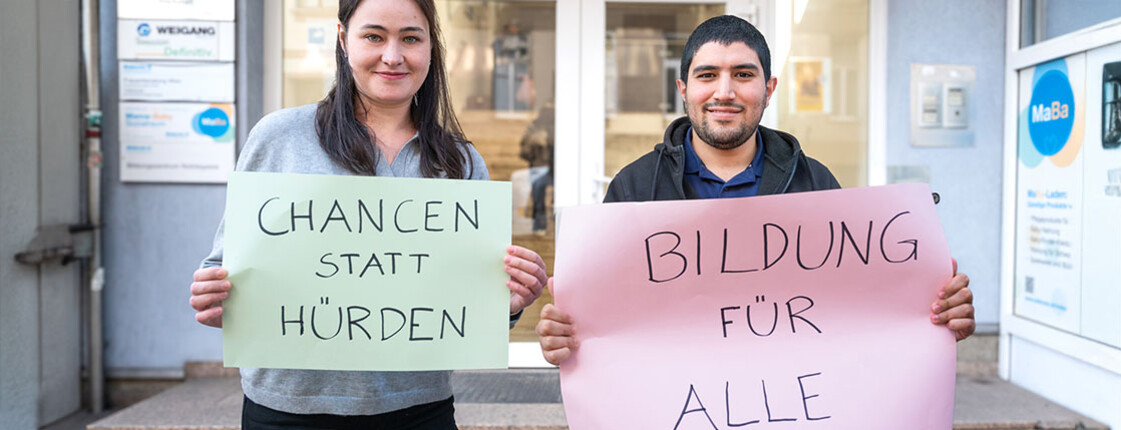 WEIGANG
Definitiv
MaBa
CHANCEN
STATT
HÜRDEN
BILDUNG
FÜR
ALLE
MaBa
MaBa-Laden: